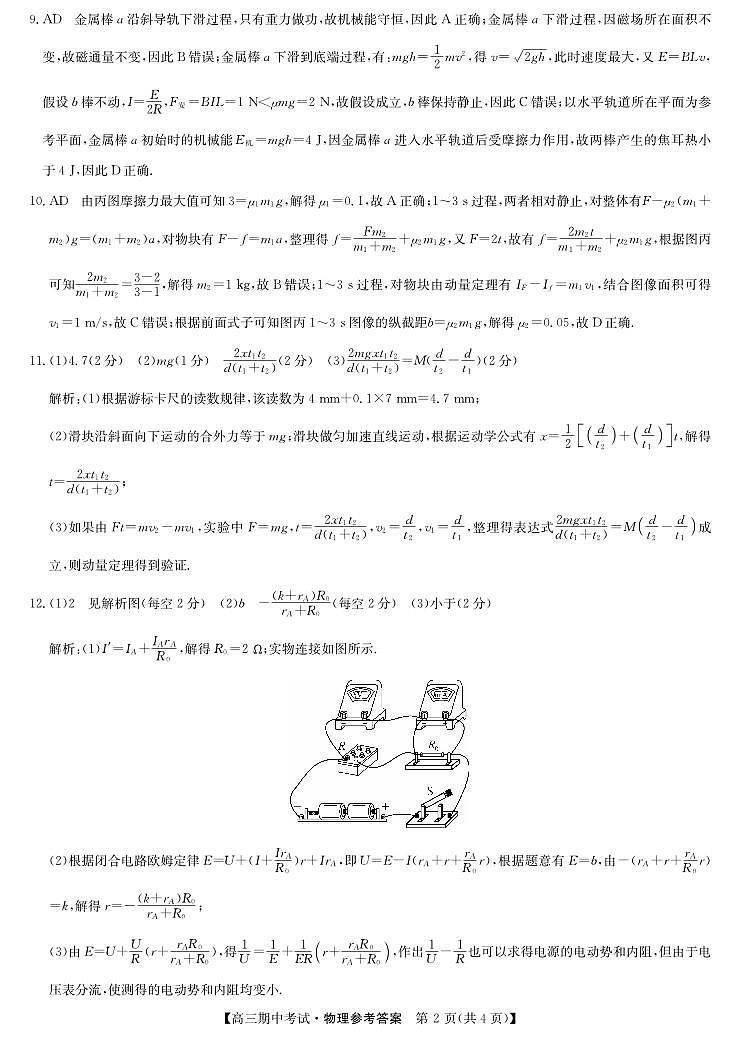 9. AD 金属棒 a 沿斜导轨下滑过程,只有重力做功,故机械能守恒,因此 A 正确;金属棒 a 下滑过程,因磁场所在面积不
变,故磁通量不变,因此 B 错误;金属棒 a 下滑到底端过程,有:mgh=\frac{1}{2}mv²,得 v=\sqrt{2gh},此时速度最大,又 E=BLv,
假设 b 棒不动,I=\frac{E}{2R},F安=BIL=1 N<μmg=2 N,故假设成立,b 棒保持静止,因此 C 错误;以水平轨道所在平面为参
考平面,金属棒 a 初始时的机械能 E机=mgh=4 J,因金属棒 a 进入水平轨道后受摩擦力作用,故两棒产生的焦耳热小
于 4 J,因此 D 正确.
10. AD 由丙图摩擦力最大值可知 3=μ₁m₁g,解得 μ₁=0.1,故 A 正确;1~3 s 过程,两者相对静止,对整体有F-μ₂(m₁+
m₂)g=(m₁+m₂)a,对物块有 F-f=m₁a,整理得 f=\frac{Fm₂}{m₁+m₂}+μ₂m₁g,又 F=2t,故有 f=\frac{2m₂t}{m₁+m₂}+μ₂m₁g,根据图丙
可知\frac{2m₂}{m₁+m₂}=\frac{3-2}{3-1},解得 m₂=1 kg,故 B 错误;1~3 s 过程,对物块由动量定理有 I_F-I_f=m₁v₁,结合图像面积可得
v₁=1 m/s,故 C 错误;根据前面式子可知图丙 1~3 s 图像的纵截距b=μ₂m₁g,解得 μ₂=0.05,故 D 正确.
11. (1)4.7(2 分) (2)mg(1 分) \frac{2xt₁t₂}{d(t₁+t₂)}(2 分) (3)\frac{2mgxt₁t₂}{d(t₁+t₂)}=M(\frac{d}{t₂}-\frac{d}{t₁})(2 分)
解析:(1)根据游标卡尺的读数规律,该读数为 4 mm+0.1×7 mm=4.7 mm;
(2)滑块沿斜面向下运动的合外力等于 mg;滑块做匀加速直线运动,根据运动学公式有 x=\frac{1}{2}[(\frac{d}{t₂})+(\frac{d}{t₁})]t,解得
t=\frac{2xt₁t₂}{d(t₁+t₂)};
(3)如果由 Ft=mv₂-mv₁,实验中 F=mg,t=\frac{2xt₁t₂}{d(t₁+t₂)},v₂=\frac{d}{t₂},v₁=\frac{d}{t₁},整理得表达式\frac{2mgxt₁t₂}{d(t₁+t₂)}=M(\frac{d}{t₂}-\frac{d}{t₁})成
立,则动量定理得到验证.
12. (1)2 见解析图(每空 2 分) (2)b -\frac{(k+r_A)R₀}{r_A+R₀}(每空 2 分) (3)小于(2 分)
解析:(1)I'=I_A+\frac{I_Ar_A}{R₀},解得 R₀=2 Ω;实物连接如图所示.
R R₀
S
- +
(2)根据闭合电路欧姆定律 E=U+(I+\frac{Ir_A}{R₀})r+Ir_A,即 U=E-I(r_A+r+\frac{r_A}{R₀}r),根据题意有 E=b,由-(r_A+r+\frac{r_A}{R₀}r)
=k,解得 r=-\frac{(k+r_A)R₀}{r_A+R₀};
(3)由 E=U+\frac{U}{R}(r+\frac{r_AR₀}{r_A+R₀}),得\frac{1}{U}=\frac{1}{E}+\frac{1}{ER}(r+\frac{r_AR₀}{r_A+R₀}),作出\frac{1}{U}-\frac{1}{R}也可以求得电源的电动势和内阻,但由于电
压表分流,使测得的电动势和内阻均变小.
【高三期中考试·物理参考答案 第 2 页(共 4 页)】